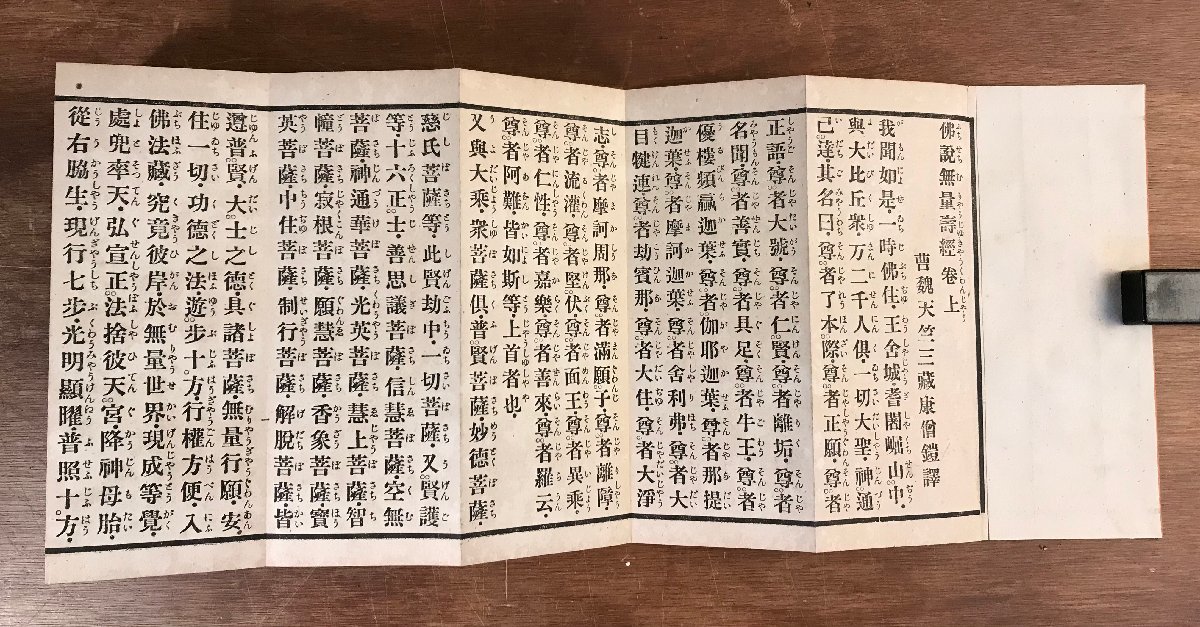 佛說無量壽經卷上
曹魏天竺三藏康僧鎧譯
我聞如是・一時佛住・王舍城耆闍崛山中・
與大比丘衆・萬二千人俱・一切大聖・神通
已達・其名曰・尊者了本際・尊者正願・尊者
正語・尊者大號・尊者仁賢・尊者離垢・尊者
名聞・尊者善實・尊者具足・尊者牛王・尊者
優樓頻蠃迦葉・尊者伽耶迦葉・尊者那提
迦葉・尊者摩訶迦葉・尊者舍利弗・尊者大
目犍連・尊者劫賓那・尊者大住・尊者大淨
志・尊者摩訶周那・尊者滿願子・尊者離障・
尊者流灌・尊者堅伏・尊者面王・尊者異乘・
尊者仁性・尊者嘉樂・尊者善來・尊者羅云・
尊者阿難・皆如斯等・上首者也・
又與大乘・衆菩薩俱・普賢菩薩・妙德菩薩・
慈氏菩薩等・此賢劫中・一切菩薩・又賢護
等・十六正士・善思議菩薩・信慧菩薩・空無
菩薩・神通華菩薩・光英菩薩・慧上菩薩・智
幢菩薩・寂根菩薩・願慧菩薩・香象菩薩・寶
英菩薩・中住菩薩・制行菩薩・解脫菩薩・皆
遵普賢・大士之德・具諸菩薩・無量行願・安
住一切・功德之法・遊步十方・行權方便・入
佛法藏・究竟彼岸・於無量世界・現成等覺・
處兜率天・弘宣正法・捨彼天宮・降神母胎・
從右脇生・現行七步・光明顯曜・普照十方・